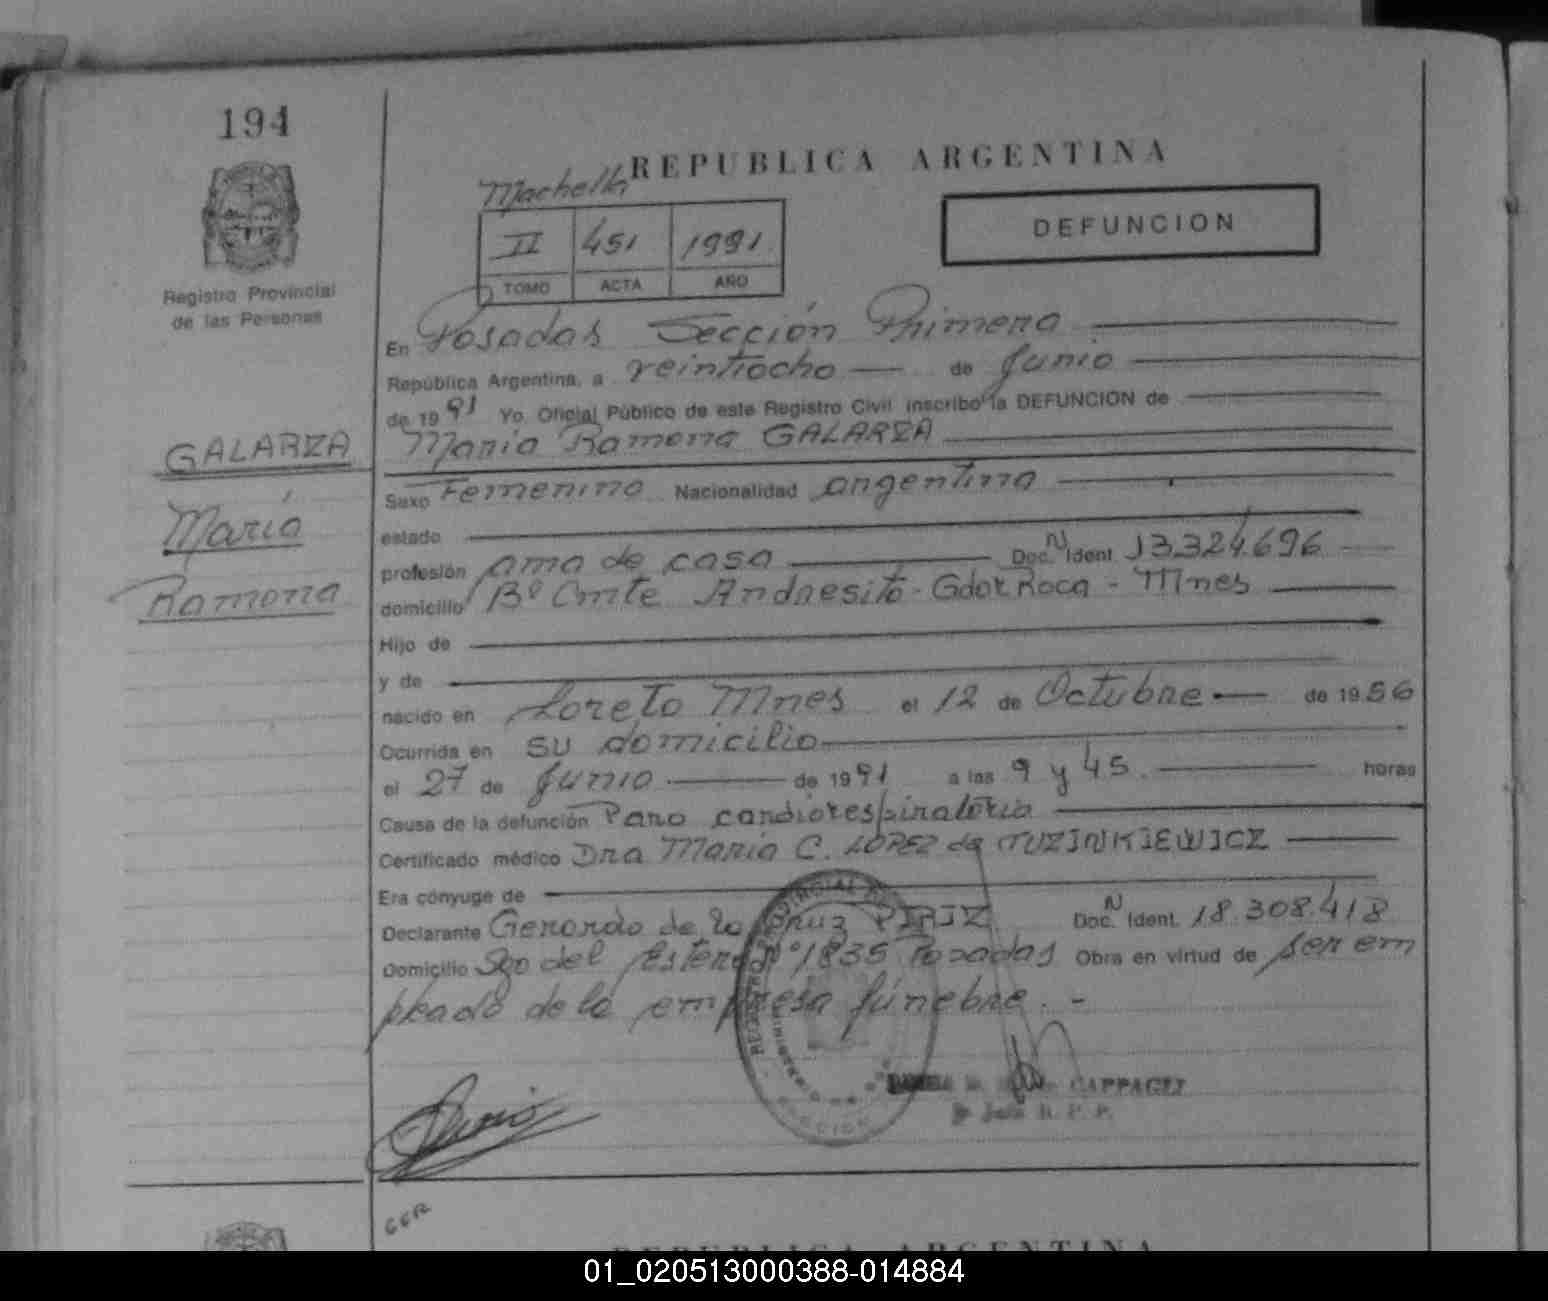 194
REPUBLICA ARGENTINA
Machella
II 451 1991
TOMO ACTA AÑO
DEFUNCION
Registro Provincial
de las Personas
GALARZA
María
Ramona
En Posadas Sección Primera
República Argentina, a veintiocho de Junio
de 1991 Yo, Oficial Público de este Registro Civil inscribo la DEFUNCION de
María Ramona GALARZA
Sexo Femenino Nacionalidad argentina
estado
profesión ama de casa Doc. N Ident. 13.324.696
domicilio Bº Cmte Andresito - Gdor Roca - Mnes
Hijo de
y de
nacido en Loreto Mnes el 12 de Octubre de 1956
Ocurrida en su domicilio
el 27 de Junio de 1991 a las 9 y 45 horas
Causa de la defunción Paro cardiorespiratorio
Certificado médico Dra María C. LOPEZ de TUZINKIEWICZ
Era cónyuge de
Declarante Gerardo de la Cruz PIRIZ Doc. N Ident. 18.308.418
Domicilio Sgo del Estero Nº 1835 Posadas Obra en virtud de ser em
pleado de la empresa fúnebre. -
CAPPAGLI
R. P. P.
GER
REPUBLICA ARGENTINA
01_020513000388-014884